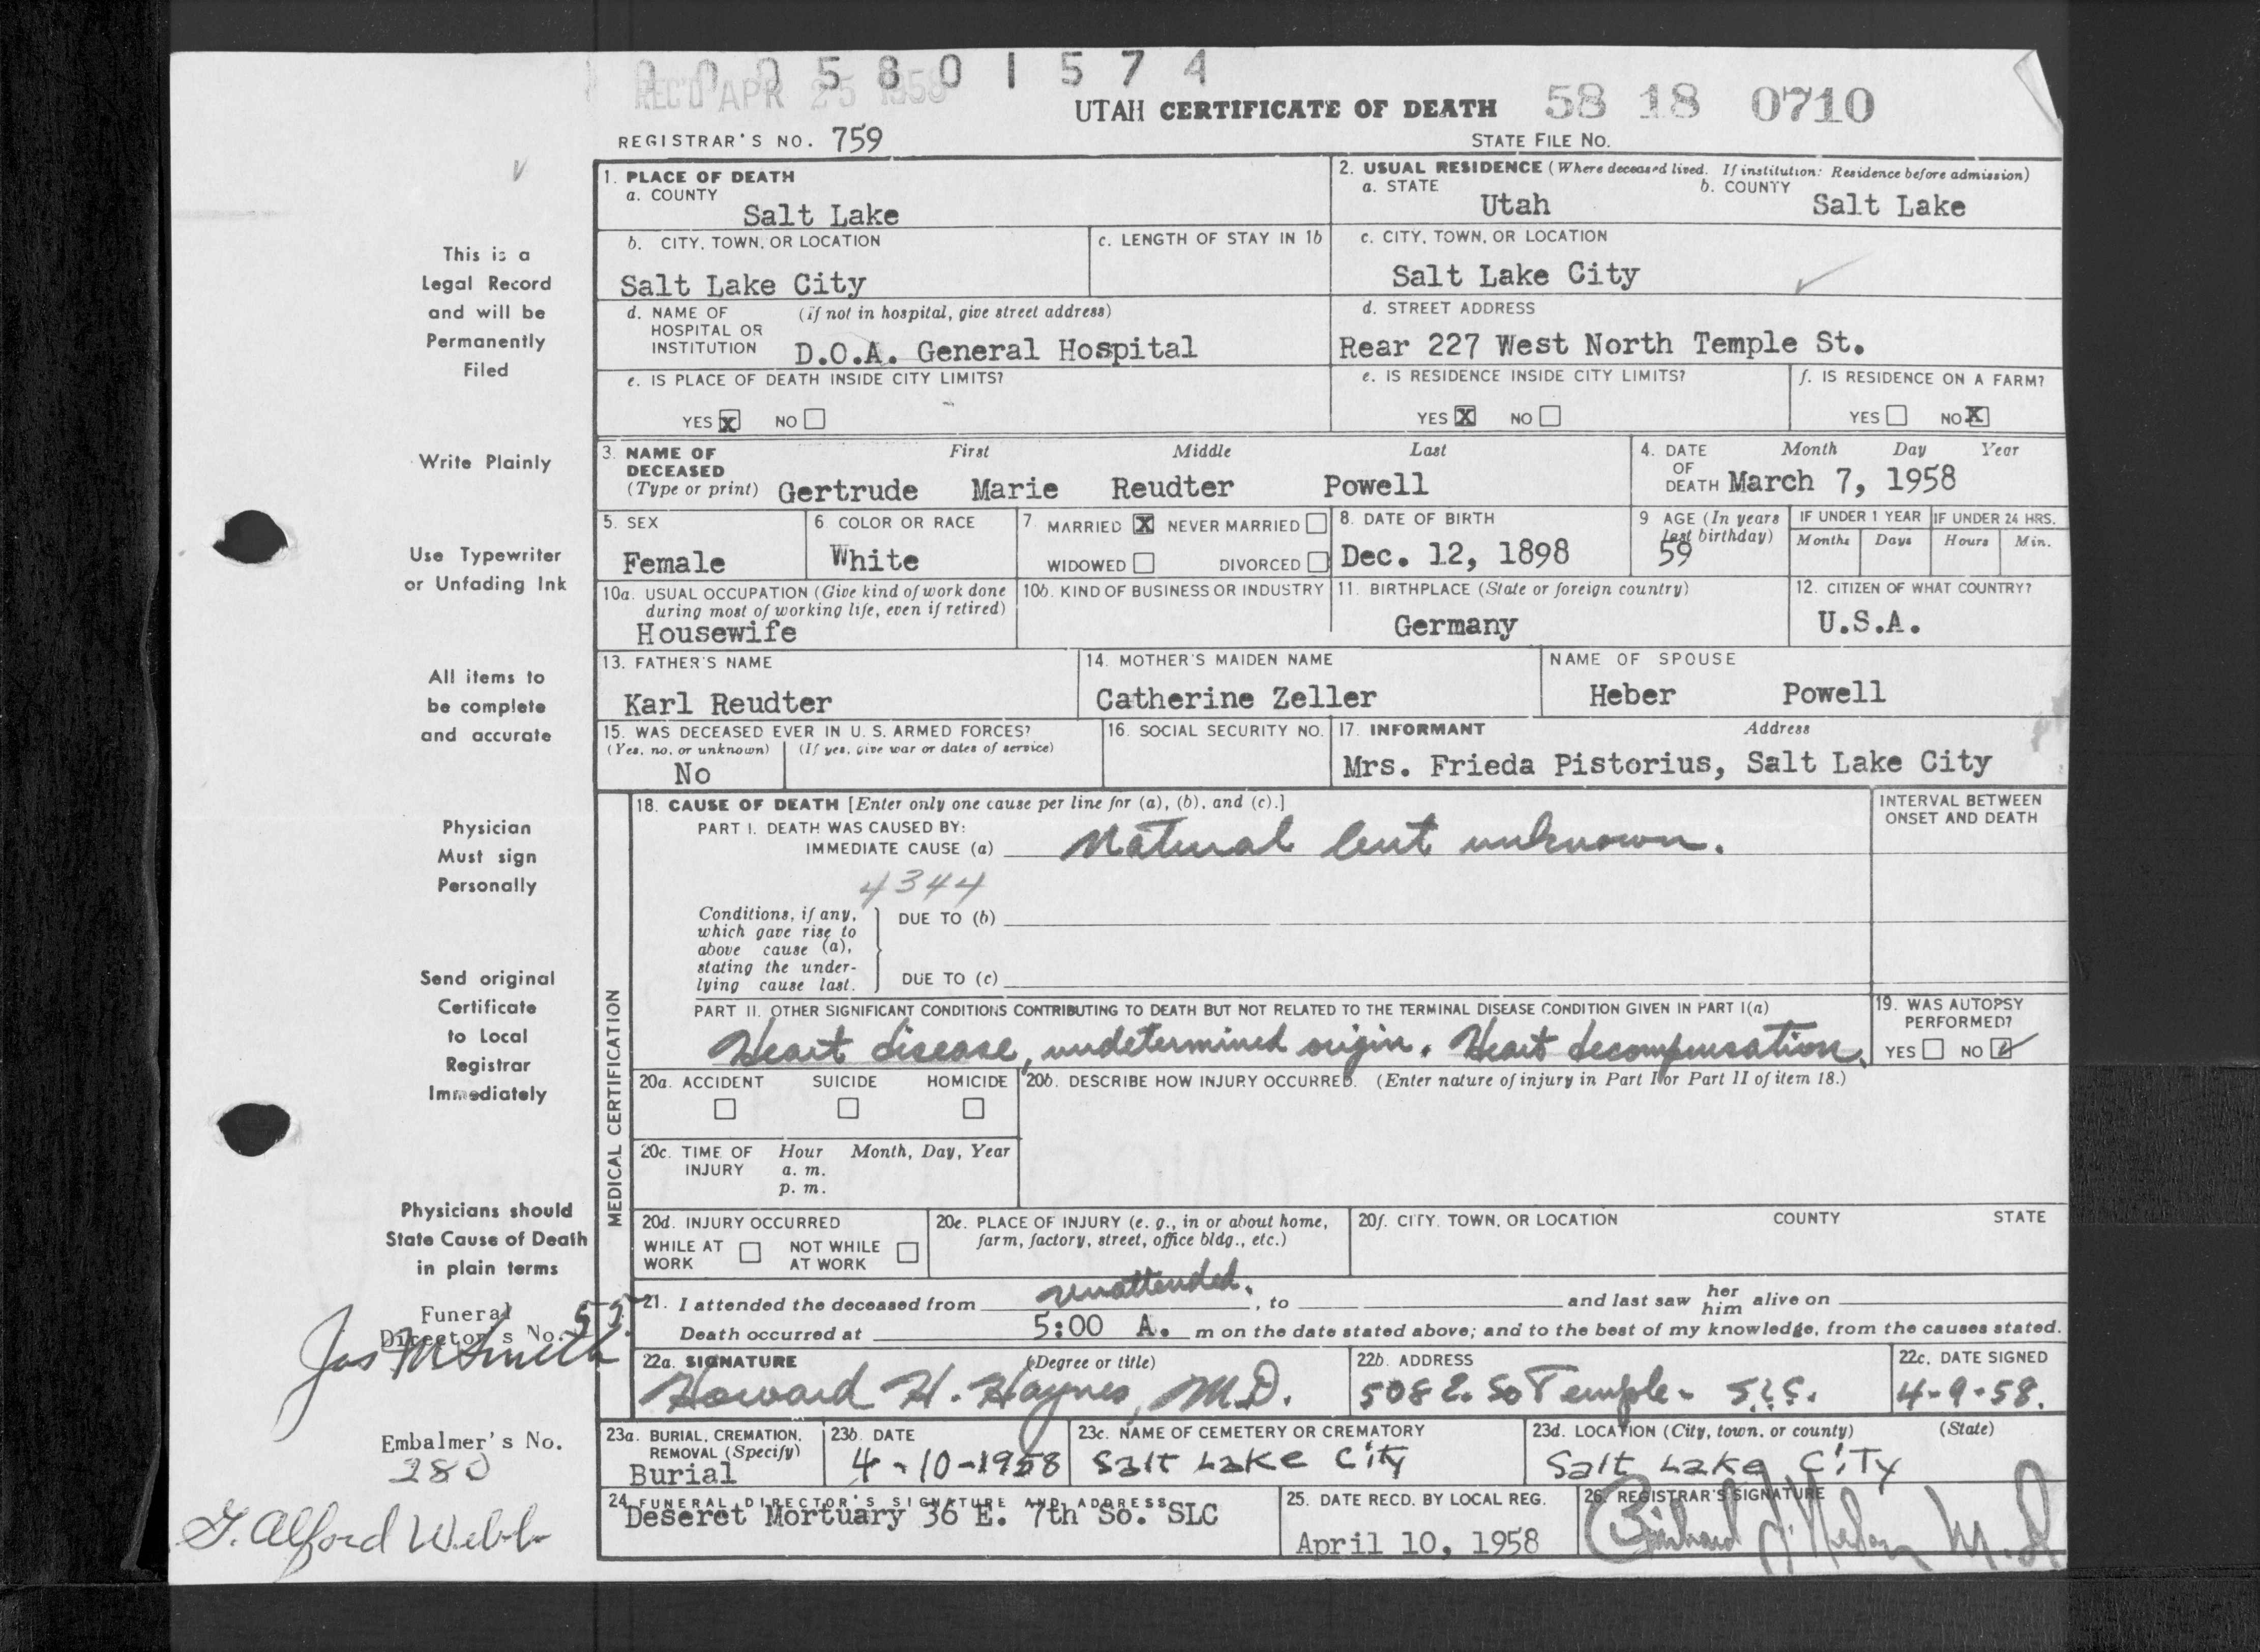 0 0 0 5 8 0 1 5 7 4
REC'D APR 25 1958
UTAH CERTIFICATE OF DEATH 58 18 0710
REGISTRAR'S NO. 759 STATE FILE NO.
1. PLACE OF DEATH
a. COUNTY
Salt Lake
2. USUAL RESIDENCE (Where deceased lived. If institution: Residence before admission)
a. STATE b. COUNTY
Utah Salt Lake
b. CITY, TOWN, OR LOCATION
Salt Lake City
c. LENGTH OF STAY IN 1b
c. CITY, TOWN, OR LOCATION
Salt Lake City
d. NAME OF (if not in hospital, give street address)
HOSPITAL OR
INSTITUTION D.O.A. General Hospital
d. STREET ADDRESS
Rear 227 West North Temple St.
e. IS PLACE OF DEATH INSIDE CITY LIMITS?
YES X NO
e. IS RESIDENCE INSIDE CITY LIMITS?
YES X NO
f. IS RESIDENCE ON A FARM?
YES NO X
3. NAME OF First Middle Last
DECEASED
(Type or print) Gertrude Marie Reudter Powell
4. DATE Month Day Year
OF
DEATH March 7, 1958
5. SEX
Female
6. COLOR OR RACE
White
7. MARRIED X NEVER MARRIED
WIDOWED DIVORCED
8. DATE OF BIRTH
Dec. 12, 1898
9 AGE (In years
last birthday)
59
IF UNDER 1 YEAR IF UNDER 24 HRS.
Months Days Hours Min.
10a. USUAL OCCUPATION (Give kind of work done
during most of working life, even if retired)
Housewife
10b. KIND OF BUSINESS OR INDUSTRY
11. BIRTHPLACE (State or foreign country)
Germany
12. CITIZEN OF WHAT COUNTRY?
U.S.A.
13. FATHER'S NAME
Karl Reudter
14. MOTHER'S MAIDEN NAME
Catherine Zeller
NAME OF SPOUSE
Heber Powell
15. WAS DECEASED EVER IN U. S. ARMED FORCES?
(Yes, no, or unknown) (If yes, give war or dates of service)
No
16. SOCIAL SECURITY NO.
17. INFORMANT Address
Mrs. Frieda Pistorius, Salt Lake City
MEDICAL CERTIFICATION
18. CAUSE OF DEATH [Enter only one cause per line for (a), (b), and (c).]
PART I. DEATH WAS CAUSED BY:
IMMEDIATE CAUSE (a) Natural but unknown.
4344
Conditions, if any,
which gave rise to
above cause (a),
stating the under-
lying cause last.
DUE TO (b)
DUE TO (c)
INTERVAL BETWEEN
ONSET AND DEATH
PART II. OTHER SIGNIFICANT CONDITIONS CONTRIBUTING TO DEATH BUT NOT RELATED TO THE TERMINAL DISEASE CONDITION GIVEN IN PART I(a)
Heart disease, undetermined origin. Heart decompensation.
19. WAS AUTOPSY
PERFORMED?
YES NO ✓
20a. ACCIDENT SUICIDE HOMICIDE
20b. DESCRIBE HOW INJURY OCCURRED. (Enter nature of injury in Part I or Part II of item 18.)
20c. TIME OF Hour Month, Day, Year
INJURY a. m.
p. m.
20d. INJURY OCCURRED
WHILE AT NOT WHILE
WORK AT WORK
20e. PLACE OF INJURY (e. g., in or about home,
farm, factory, street, office bldg., etc.)
20f. CITY, TOWN, OR LOCATION COUNTY STATE
21. I attended the deceased from unattended. , to and last saw her him alive on
Death occurred at 5:00 A. m on the date stated above; and to the best of my knowledge, from the causes stated.
22a. SIGNATURE (Degree or title)
Howard H. Haynes, M.D.
22b. ADDRESS
508 E. So Temple - S.L.C.
22c. DATE SIGNED
4-9-58.
23a. BURIAL, CREMATION,
REMOVAL (Specify)
Burial
23b. DATE
4-10-1958
23c. NAME OF CEMETERY OR CREMATORY
Salt Lake City
23d. LOCATION (City, town, or county) (State)
Salt Lake City
24. FUNERAL DIRECTOR'S SIGNATURE AND ADDRESS
Deseret Mortuary 36 E. 7th So. SLC
25. DATE RECD. BY LOCAL REG.
April 10, 1958
26. REGISTRAR'S SIGNATURE
M.D.
This is a
Legal Record
and will be
Permanently
Filed
Write Plainly
Use Typewriter
or Unfading Ink
All items to
be complete
and accurate
Physician
Must sign
Personally
Send original
Certificate
to Local
Registrar
Immediately
Physicians should
State Cause of Death
in plain terms
Funeral
Director's No.
Jas M Smith
Embalmer's No.
280
G. Alford Webb